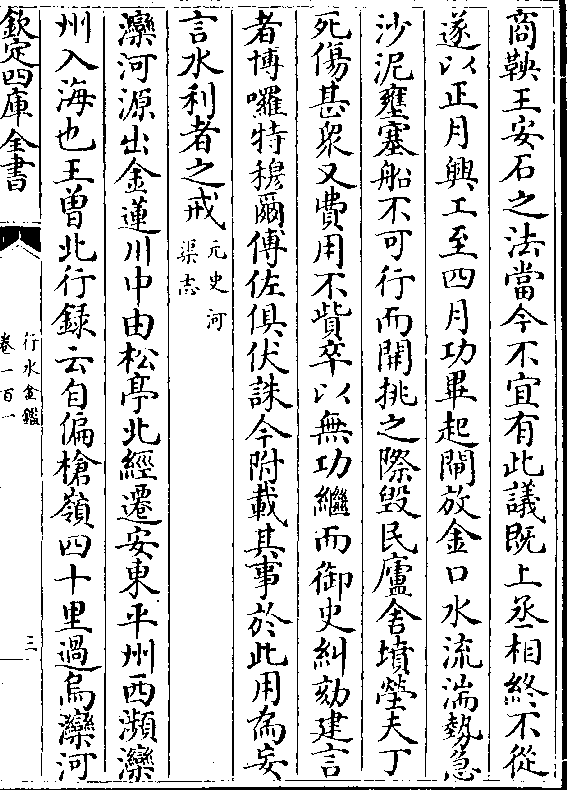 商鞅王安石之法當今不宜有此議既上丞相終不從
遂以正月興工至四月功畢起閘放金口水流湍勢急
沙泥壅塞船不可行而開挑之際毁民廬舍墳塋夫丁
死傷甚衆又費用不貲卒以無功繼而御史糾劾建言
者博囉特穆爾傅佐俱伏誅今附載其事於此用為妄
言水利者之戒元史河渠志
灤河源出金蓮川中由松亭北經遷安東平州西瀕灤
州入海也王曽北行録云自偏槍嶺四十里過烏灤河
欽定四庫全書
行水金鑑
卷一百一
三